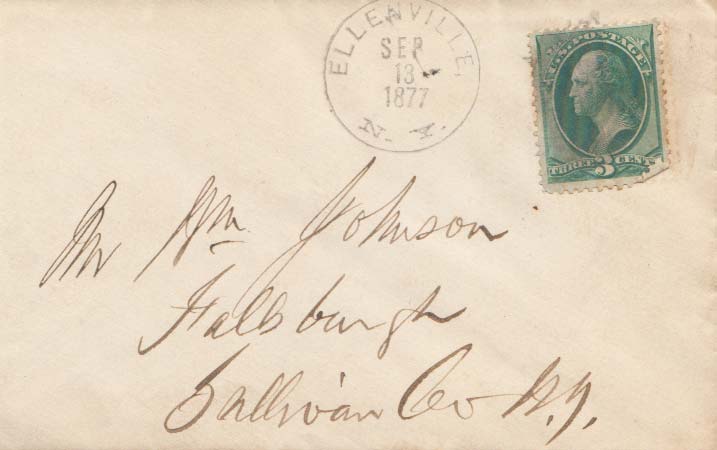 ELLENVILLE,
SEP
13
1877
N. Y.
U.S. POSTAGE
THREE 3 CENTS
Mr Wm Johnson
Fallsburgh
Sullivan Co N.Y.